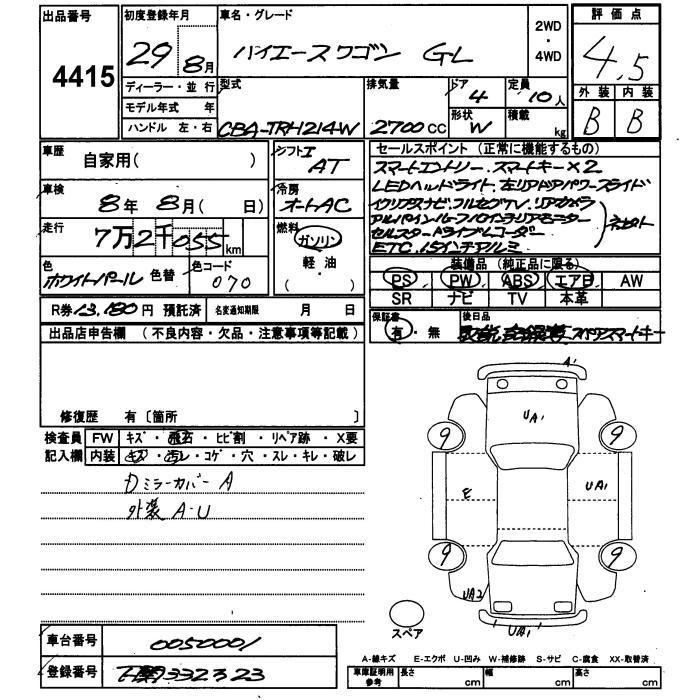 出品番号
4415
初度登録年月
29 8月
車名・グレード
ハイエースワゴン GL
2WD
・
4WD
評価点
4.5
外装 内装
B B
ディーラー・並行
モデル年式 年
ハンドル 左・右
型式
CBA-TRH214W
排気量
2700cc
ドア
4
形状
W
定員
10人
積載
kg
車歴
自家用( )
シフト
I AT
車検
8年 8月( 日)
冷房
オートAC
走行
7万2千055km
燃料
ガソリン
軽・油
( )
色
ホワイトパール 色替
色コード
070
R券 13,180円 預託済
名変通知期限 月 日
セールスポイント (正常に機能するもの)
スマートエントリー.スマートキー×2
LEDヘッドライト.左リアドアパワースライド
イクリプスナビ.フルセグTV.リアカメラ
アルパインルーフハイテリアモニター
セルスタードライブレコーダー
ETC.15インチアルミ
装備品 (純正品に限る)
PS PW ABS エアB AW
SR ナビ TV 本革
保証書
有・無
後日品
スペアスマートキー
出品店申告欄 (不良内容・欠品・注意事項等記載)
修復歴 有 〔箇所 〕
検査員記入欄
FW キズ・飛石・ヒビ割・リペア跡・X要
内装 キズ・汚レ・コゲ・穴・スレ・キレ・破レ
Dミラーカバー A
外装 A-U
A'
UA'
9 9
E UA'
9 9
UA2
UA'
スペア
A-線キズ E-エクボ U-凹み W-補修跡 S-サビ C-腐食 XX-取替済
車庫証明用参考 長さ cm 幅 cm 高さ cm
車台番号
0050001
登録番号
332 ス 323